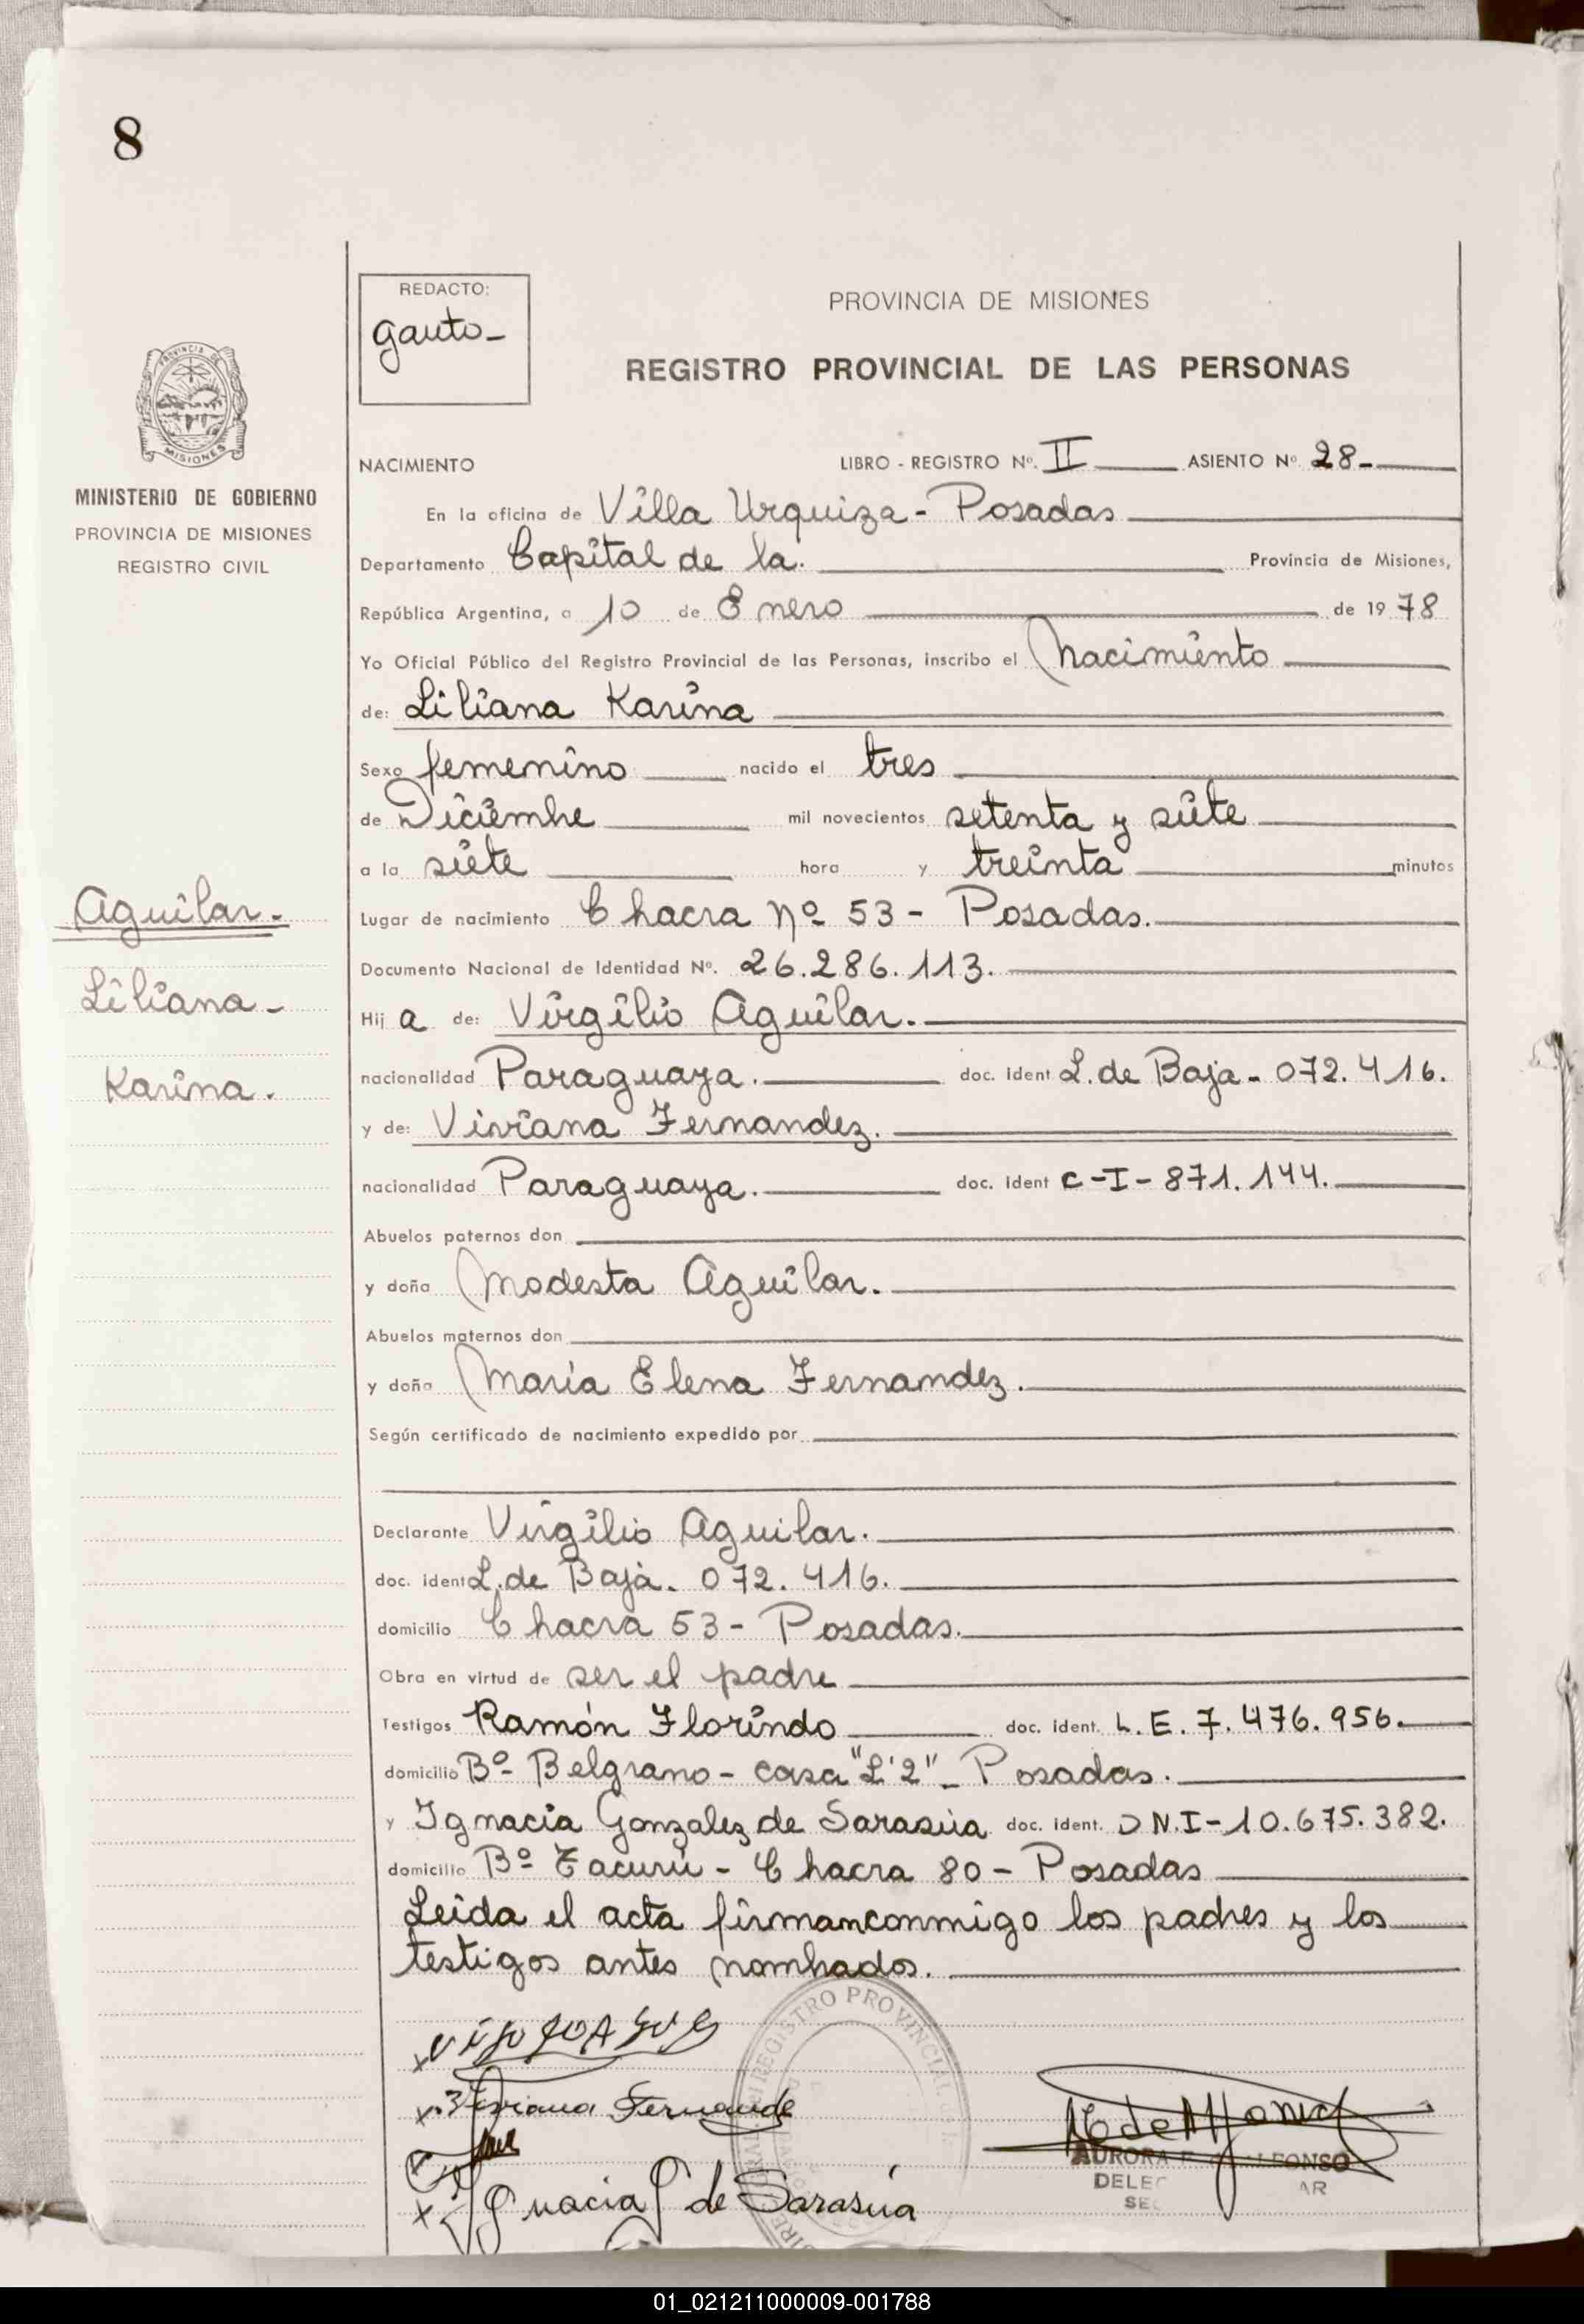 8
REDACTO:
Gauto-
PROVINCIA DE MISIONES
REGISTRO PROVINCIAL DE LAS PERSONAS
PROVINCIA DE
MISIONES
MINISTERIO DE GOBIERNO
PROVINCIA DE MISIONES
REGISTRO CIVIL
Aguilar.-
Liliana-
Karina.
NACIMIENTO LIBRO - REGISTRO Nº. II ASIENTO Nº 28-
En la oficina de Villa Urquiza - Posadas
Departamento Capital de la. Provincia de Misiones,
República Argentina, a 10 de Enero de 1978
Yo Oficial Público del Registro Provincial de las Personas, inscribo el Nacimiento
de: Liliana Karina
Sexo femenino nacido el tres
de Diciembre mil novecientos setenta y siete
a la siete hora y treinta minutos
Lugar de nacimiento Chacra Nº 53 - Posadas.
Documento Nacional de Identidad Nº. 26.286.113.
Hij a de: Virgilio Aguilar.
nacionalidad Paraguaya. doc. ident L. de Baja - 072.416.
y de: Viviana Fernandez.
nacionalidad Paraguaya. doc. ident C-I-871.144.
Abuelos paternos don
y doña Modesta Aguilar.
Abuelos maternos don
y doña María Elena Fernandez.
Según certificado de nacimiento expedido por
Declarante Virgilio Aguilar.
doc. ident L. de Baja. 072.416.
domicilio Chacra 53 - Posadas.
Obra en virtud de ser el padre
Testigos Ramón Florindo doc. ident. L.E. 7.476.956.
domicilio Bº Belgrano - casa "L'2" - Posadas.
y Ignacia Gonzalez de Sarasúa doc. ident. DN.I-10.675.382.
domicilio Bº Tacurú - Chacra 80 - Posadas
Leida el acta firmanconmigo los padres y los
testigos antes nombrados.
REGISTRO PROVINCIAL
Viviana Fernande
Ignacia G de Sarasúa
AURORA ALFONSO
DELE AR
SE
01_021211000009-001788